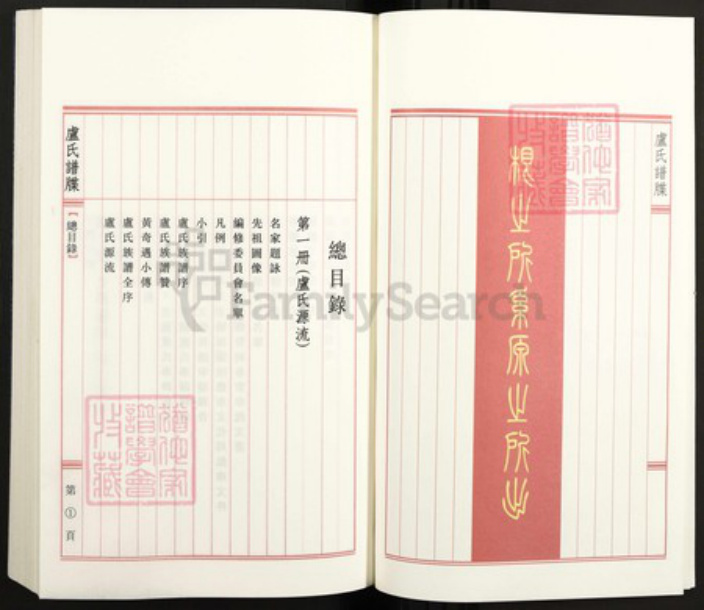 盧氏譜牒
根之所系原之所出
總目錄
第一册(盧氏源流)
名家題詠
先祖圖像
編修委員會名單
凡例
小引
盧氏族譜序
盧氏族譜贊
黃奇遇小傳
盧氏族譜全序
盧氏源流
盧氏譜牒
【總目錄】
第①頁
FamilySearch